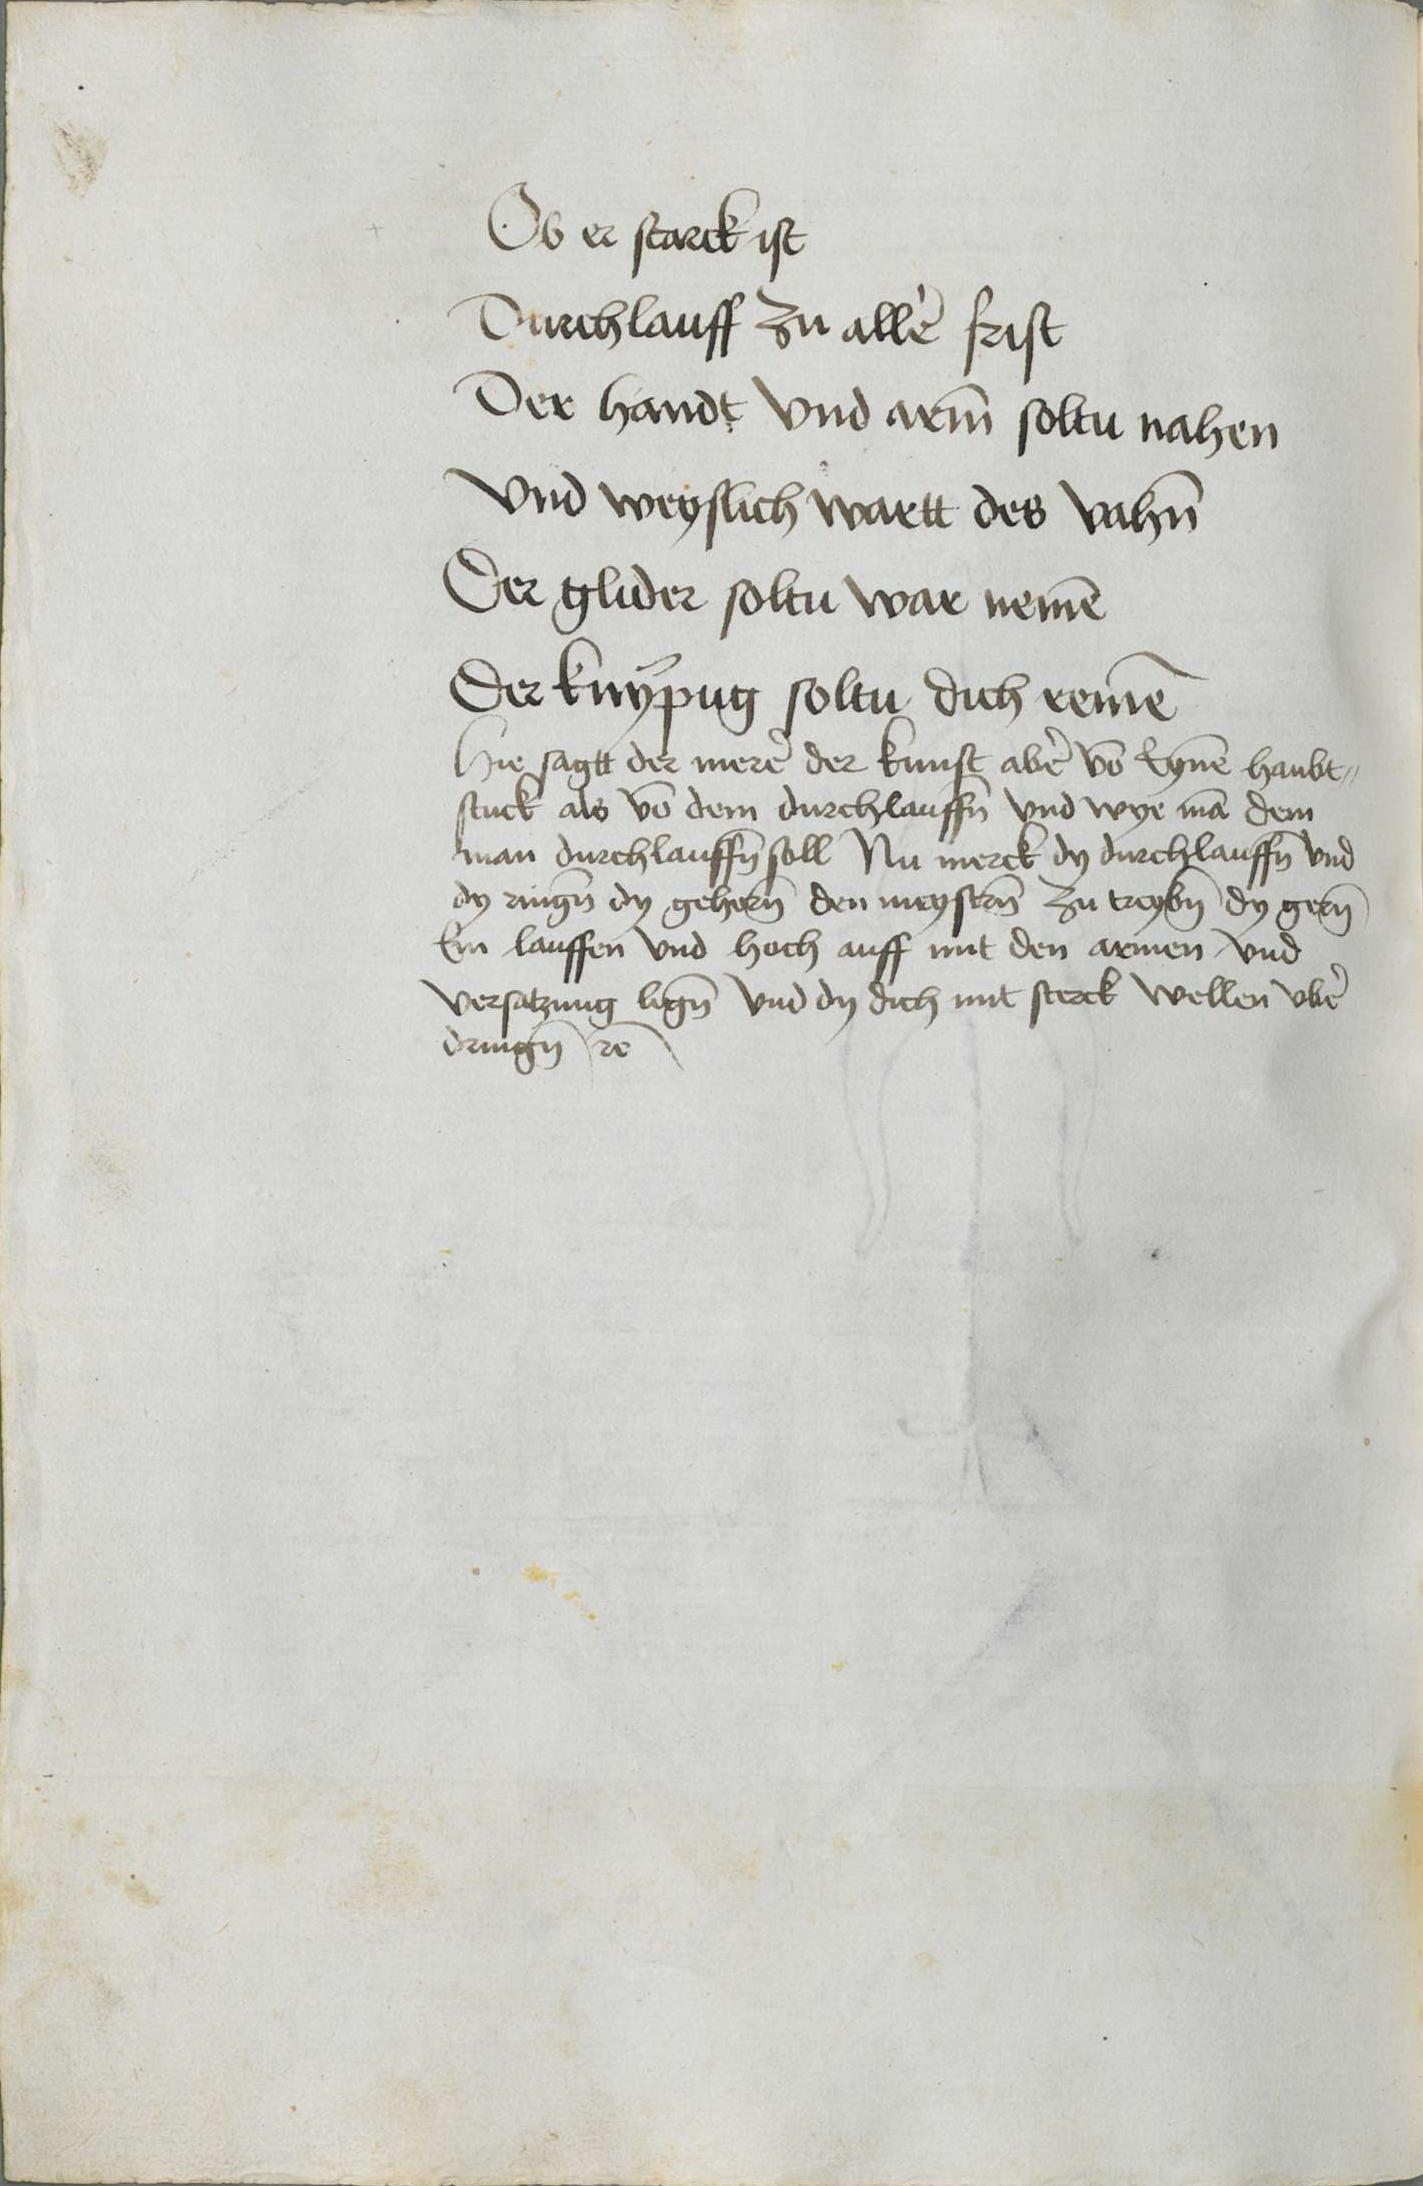 Ob er starck ist
Durchlauff zu allé frist
Der handt vnd arm̄ soltu nahen
vnd weyslich wartt des vahn̄
Der glider soltu war nemē
Der knÿpug soltu dich remē
Hie sagtt der meré der kunst abé vō Eynē haubt〃
stuck als vō dem durchlauffn̄ vnd wye mā dem
man durchlauffn̄ soll Nu merck dy durchlauffn̄ vnd
dy ringn̄ dy gehorn̄ den meystrn̄ zu treybn̄ dy gern̄
Ein lauffen vnd hoch auff mit den armen vnd
versatzung lign̄ vnd dy dich mit sterck wellen vbé
dringn̄ rc